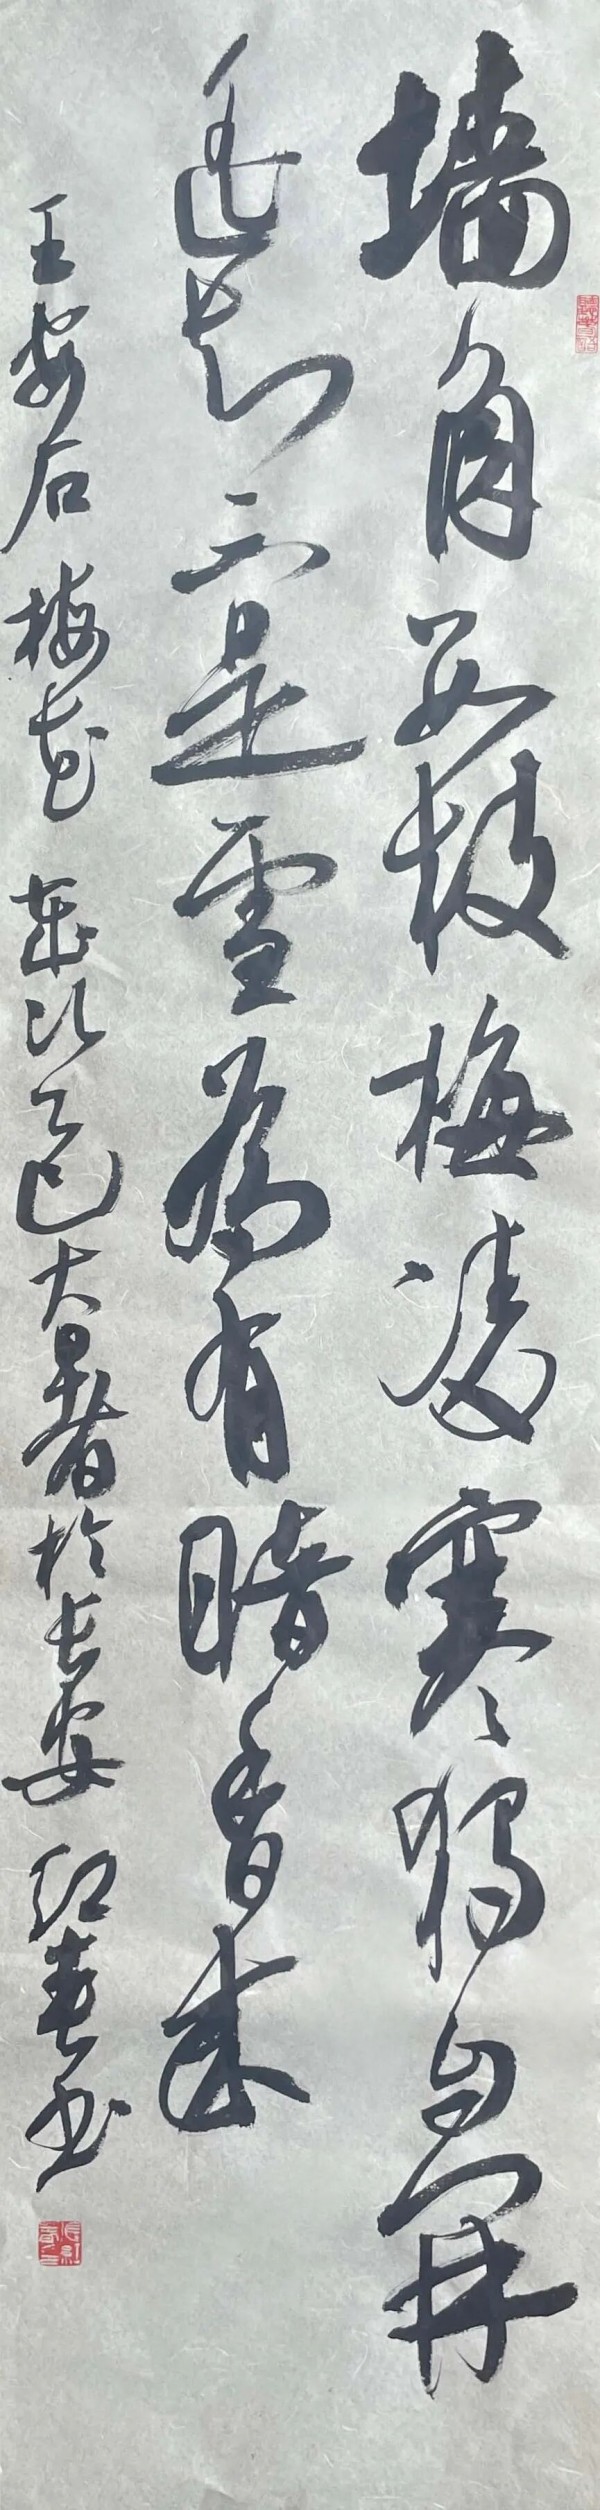 墙角数枝梅凌寒独自開
遥知不是雪為有暗香来
王安石梅花 歲次乙巳大暑於长安 红春书